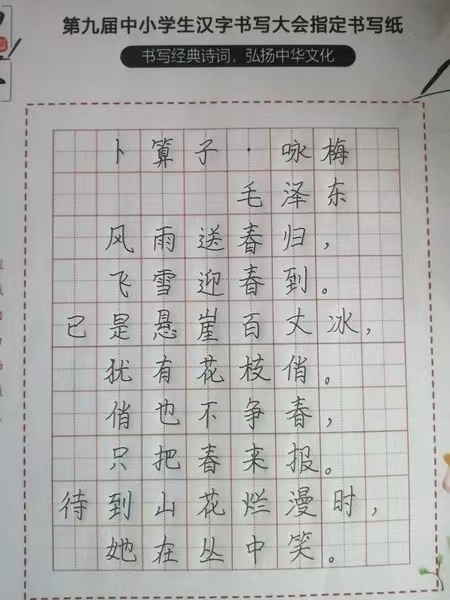 第九届中小学生汉字书写大会指定书写纸
书写经典诗词，弘扬中华文化
卜算子·咏梅
毛泽东
风雨送春归，
飞雪迎春到。
已是悬崖百丈冰，
犹有花枝俏。
俏也不争春，
只把春来报。
待到山花烂漫时，
她在丛中笑。